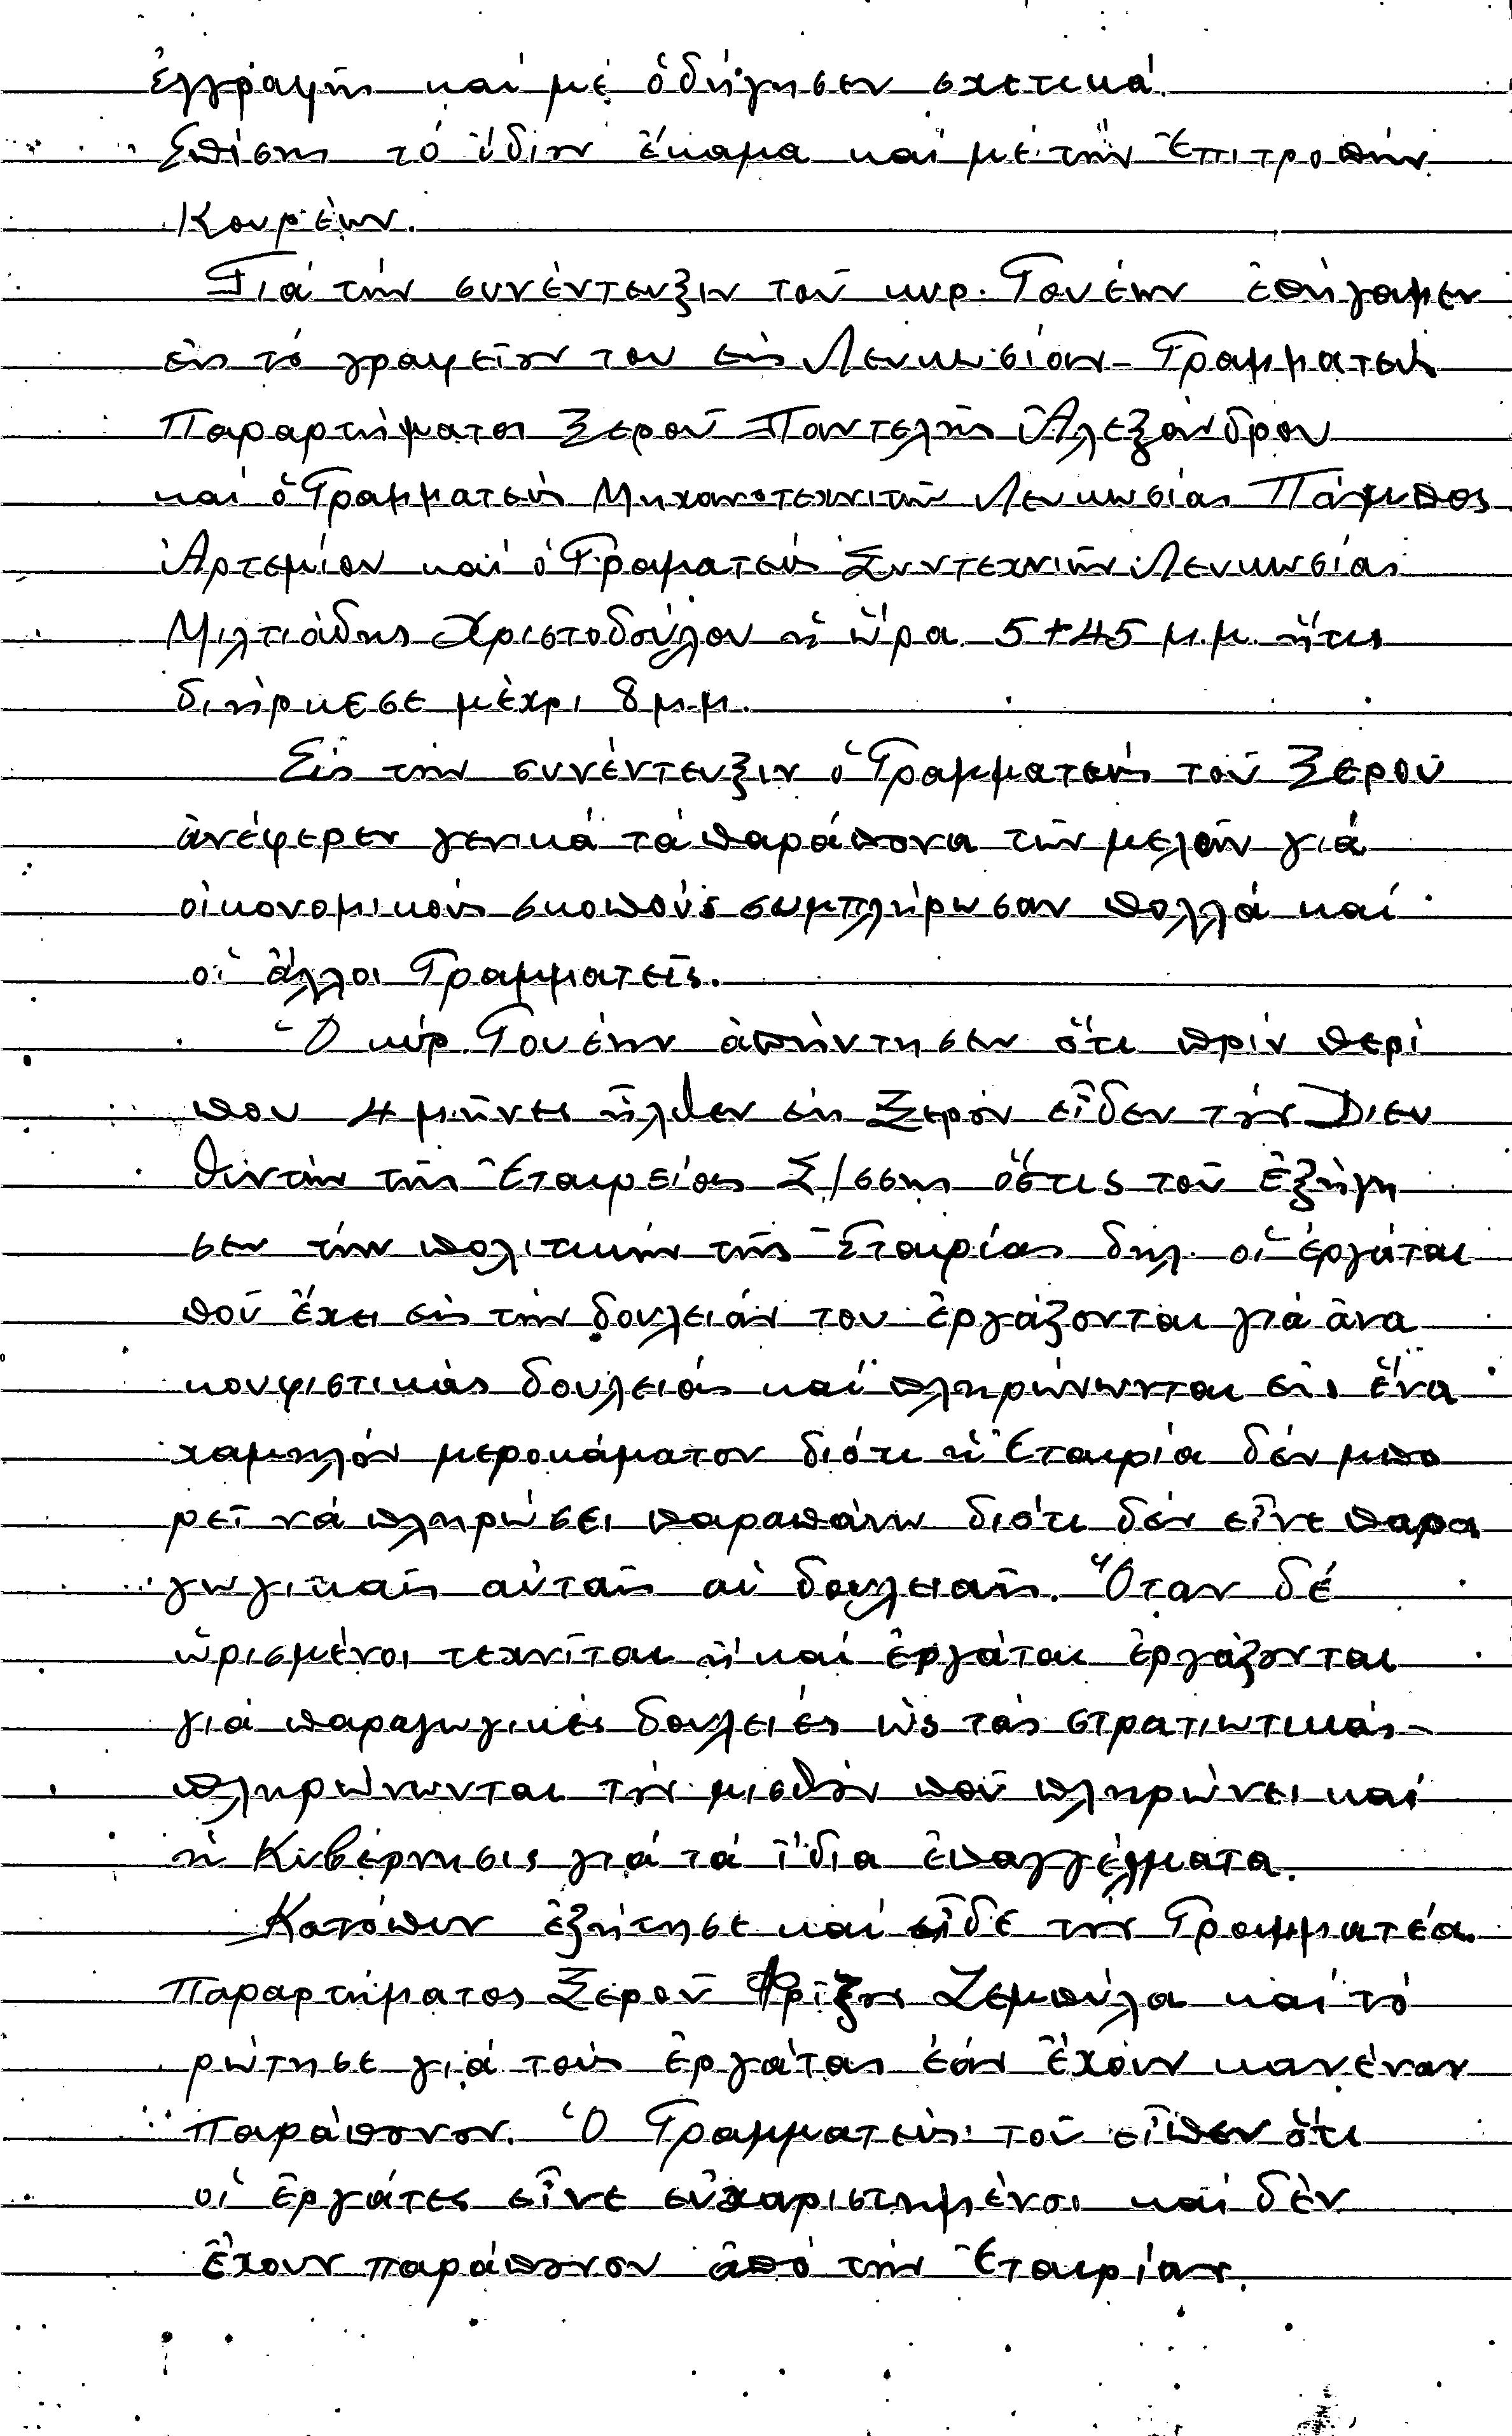 ἐγγραφῆς καί μέ ὁδήγησεν σχετικά.
Ἐπίσης τό ἴδιον ἔκαμα καί μέ τήν Ἐπιτροπήν
Κουρέων.
Γιά τήν συνέντευξιν τοῦ κυρ. Γουέην ἐπήγαμεν
εἰς τό γραφεῖον του εἰς Λευκωσίαν - Γραμματεύς
Παραρτήματος Ξεροῦ Παντελῆς Ἀλεξάνδρου
καί ὁ Γραμματεύς Μηχανοτεχνιτῶν Λευκωσίας Πάμπος
Ἀρτεμίου καί ὁ Γραματεύς Συντεχνιῶν Λευκωσίας
Μιλτιάδης Χριστοδούλου ἡ ὥρα 5+45 μ.μ. ἥτις
διήρκεσε μέχρι 8 μ.μ.
Εἰς τήν συνέντευξιν ὁ Γραμματεύς τοῦ Ξεροῦ
ἀνέφερεν γενικά τά παράπονα τῶν μελῶν γιά
οἰκονομικούς σκοπούς συμπλήρωσαν πολλά καί
οἱ ἄλλοι Γραμματεῖς.
Ὁ κύρ. Γουέην ἀπήντησεν ὅτι πρίν περί
που 4 μῆνες ἦλθεν εἰς Ξερόν εἶδεν τόν Διευ
θυντήν τῆς Ἑταιρείας Σ/σσης ὅστις τοῦ ἐξήγη
σεν τήν πολιτικήν τῆς Ἑταιρίας δηλ. οἱ ἐργάται
ποῦ ἔχει εἰς τήν δουλειάν του ἐργάζονται γιά ἀνα
κουφιστικάς δουλειάς καί πληρώνωνται εἰς ἕνα
χαμηλόν μεροκάματον διότι ἡ Ἑταιρία δέν μπο
ρεῖ νά πληρώσει παραπάνω διότι δέν εἶνε παρα
γωγικαῖς αὐταῖς αἱ δουλειαῖς. Ὅταν δέ
ὡρισμένοι τεχνῖται ἤ καί ἐργάται ἐργάζονται
γιά παραγωγικές δουλειές ὡς τάς στρατιωτικάς -
πληρώνωνται τόν μισθόν ποῦ πληρώνει καί
ἡ Κυβέρνησις γιά τά ἴδια ἐπαγγέλματα.
Κατόπιν ἐζήτησε καί εἶδε τόν Γραμματέα
Παραρτήματος Ξεροῦ Φρίξον Ζεμπύλα καί τό
ρώτησε γιά τούς ἐργάτας ἐάν ἔχουν κανέναν
παράπονον. Ὁ Γραμματεύς τοῦ εἶπεν ὅτι
οἱ ἐργάτες εἶνε εὐχαριστημένοι καί δέν
ἔχουν παράπονον ἀπό τήν Ἑταιρίαν.